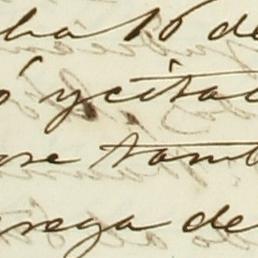 ha 16 de
ó ycitac
ose tamb
rega de